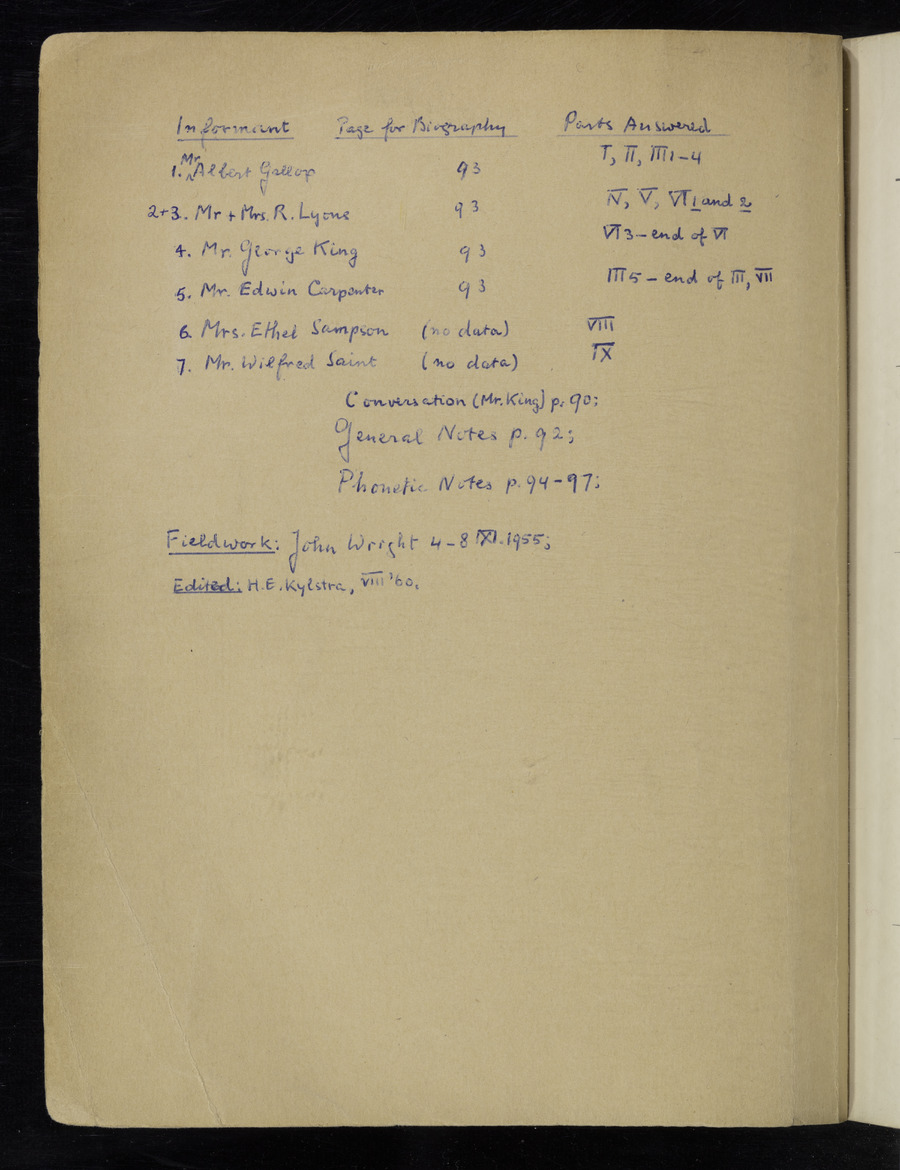 Informant Page for Biography Parts Answered
1. Mr Albert Gallop 93 I, II, III 1-4
2+3. Mr + Mrs. R. Lyons 93 IV, V, VI 1 and 2
4. Mr. George King 93 VI 3 - end of VI
5. Mr. Edwin Carpenter 93 III 5 - end of III, VII
6. Mrs. Ethel Sampson (no data) VIII
7. Mr. Wilfred Saint (no data) IX
Conversation (Mr. King) p. 90;
General Notes p. 92;
Phonetic Notes p. 94-97;
Fieldwork: John Wright 4-8 XI. 1955;
Edited: H.E. Kylstra, VIII '60.